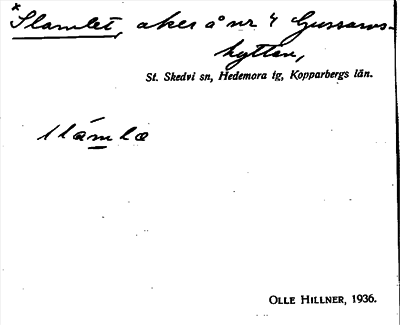 *Slamlet, åker å nr 4 Gussarvs-
hyttan,
St. Skedvi sn, Hedemora tg, Kopparbergs län.
OLLE HILLNER, 1936.